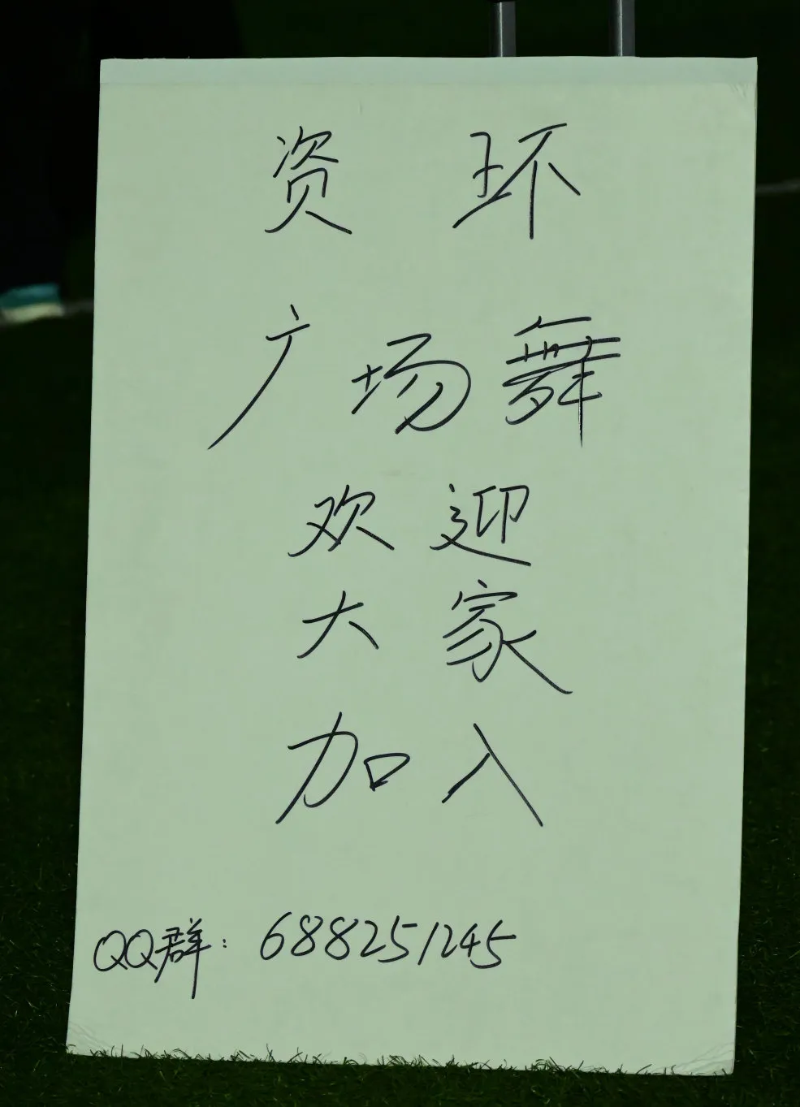 资 环
广场舞
欢迎
大家
加入
QQ群：688251245